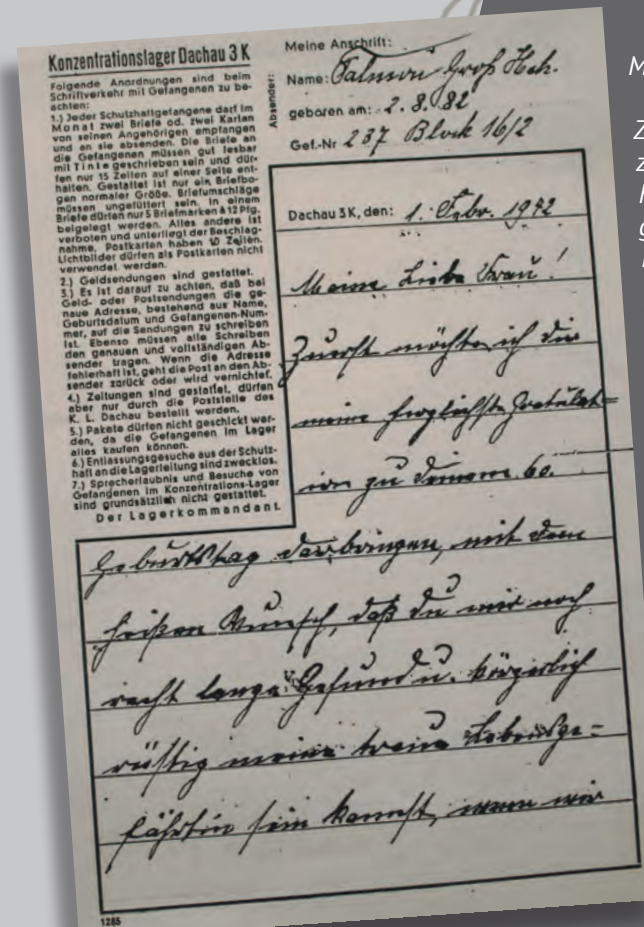 Konzentrationslager Dachau 3 K
Folgende Anordnungen sind beim
Schriftverkehr mit Gefangenen zu be-
achten:
1.) Jeder Schutzhaftgefangene darf im
Monat zwei Briefe od. zwei Karten
von seinen Angehörigen empfangen
und an sie absenden. Die Briefe an
die Gefangenen müssen gut lesbar
mit Tinte geschrieben sein und dür-
fen nur 15 Zeilen auf einer Seite ent-
halten. Gestattet ist nur ein Briefbo-
gen normaler Größe. Briefumschläge
müssen ungefüttert sein. In einem
Briefe dürfen nur 5 Briefmarken à 12 Pfg.
beigelegt werden. Alles andere ist
verboten und unterliegt der Beschlag-
nahme. Postkarten haben 10 Zeilen.
Lichtbilder dürfen als Postkarten nicht
verwendet werden.
2.) Geldsendungen sind gestattet.
3.) Es ist darauf zu achten, daß bei
Geld- oder Postsendungen die ge-
naue Adresse, bestehend aus Name,
Geburtsdatum und Gefangenen-Num-
mer, auf die Sendungen zu schreiben
ist. Ebenso müssen alle Schreiben
den genauen und vollständigen Ab-
sender tragen. Wenn die Adresse
fehlerhaft ist, geht die Post an den Ab-
sender zurück oder wird vernichtet.
4.) Zeitungen sind gestattet, dürfen
aber nur durch die Poststelle des
K. L. Dachau bestellt werden.
5.) Pakete dürfen nicht geschickt wer-
den, da die Gefangenen im Lager
alles kaufen können.
6.) Entlassungsgesuche aus der Schutz-
haft an die Lagerleitung sind zwecklos.
7.) Sprecherlaubnis und Besuche von
Gefangenen im Konzentrations-Lager
sind grundsätzlich nicht gestattet.
Der Lagerkommandant.
Absender:
Meine Anschrift:
Name: Groß
geboren am: 2. 8. 82
Gef.-Nr 237 Block 16/2
Dachau 3 K, den: 1. Febr. 1942
Meine Liebe Frau!
Zuerst möchte ich dir
meine herzlichste Gratulat=
ion zu deinem 60.
Geburtstag darbringen, mit dem
heißen Wunsch, daß du mir noch
recht lange Gesund u. körperlich
rüstig meine treue Lebensge=
fährtin sein kannst, wenn wir
1285
M
Z